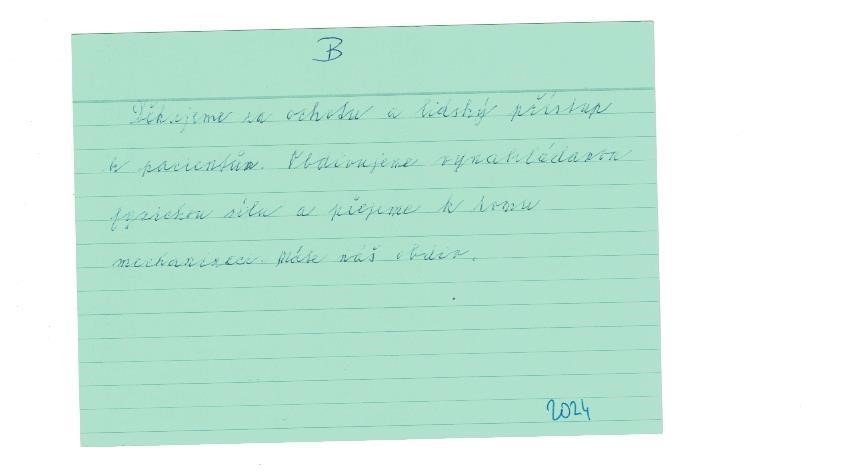 B
Děkujeme za ochotu a lidský přístup
k pacientům. Obdivujeme vynakládanou
fyzickou sílu a přejeme k tomu
mechanizaci. Máte náš obdiv.
2024